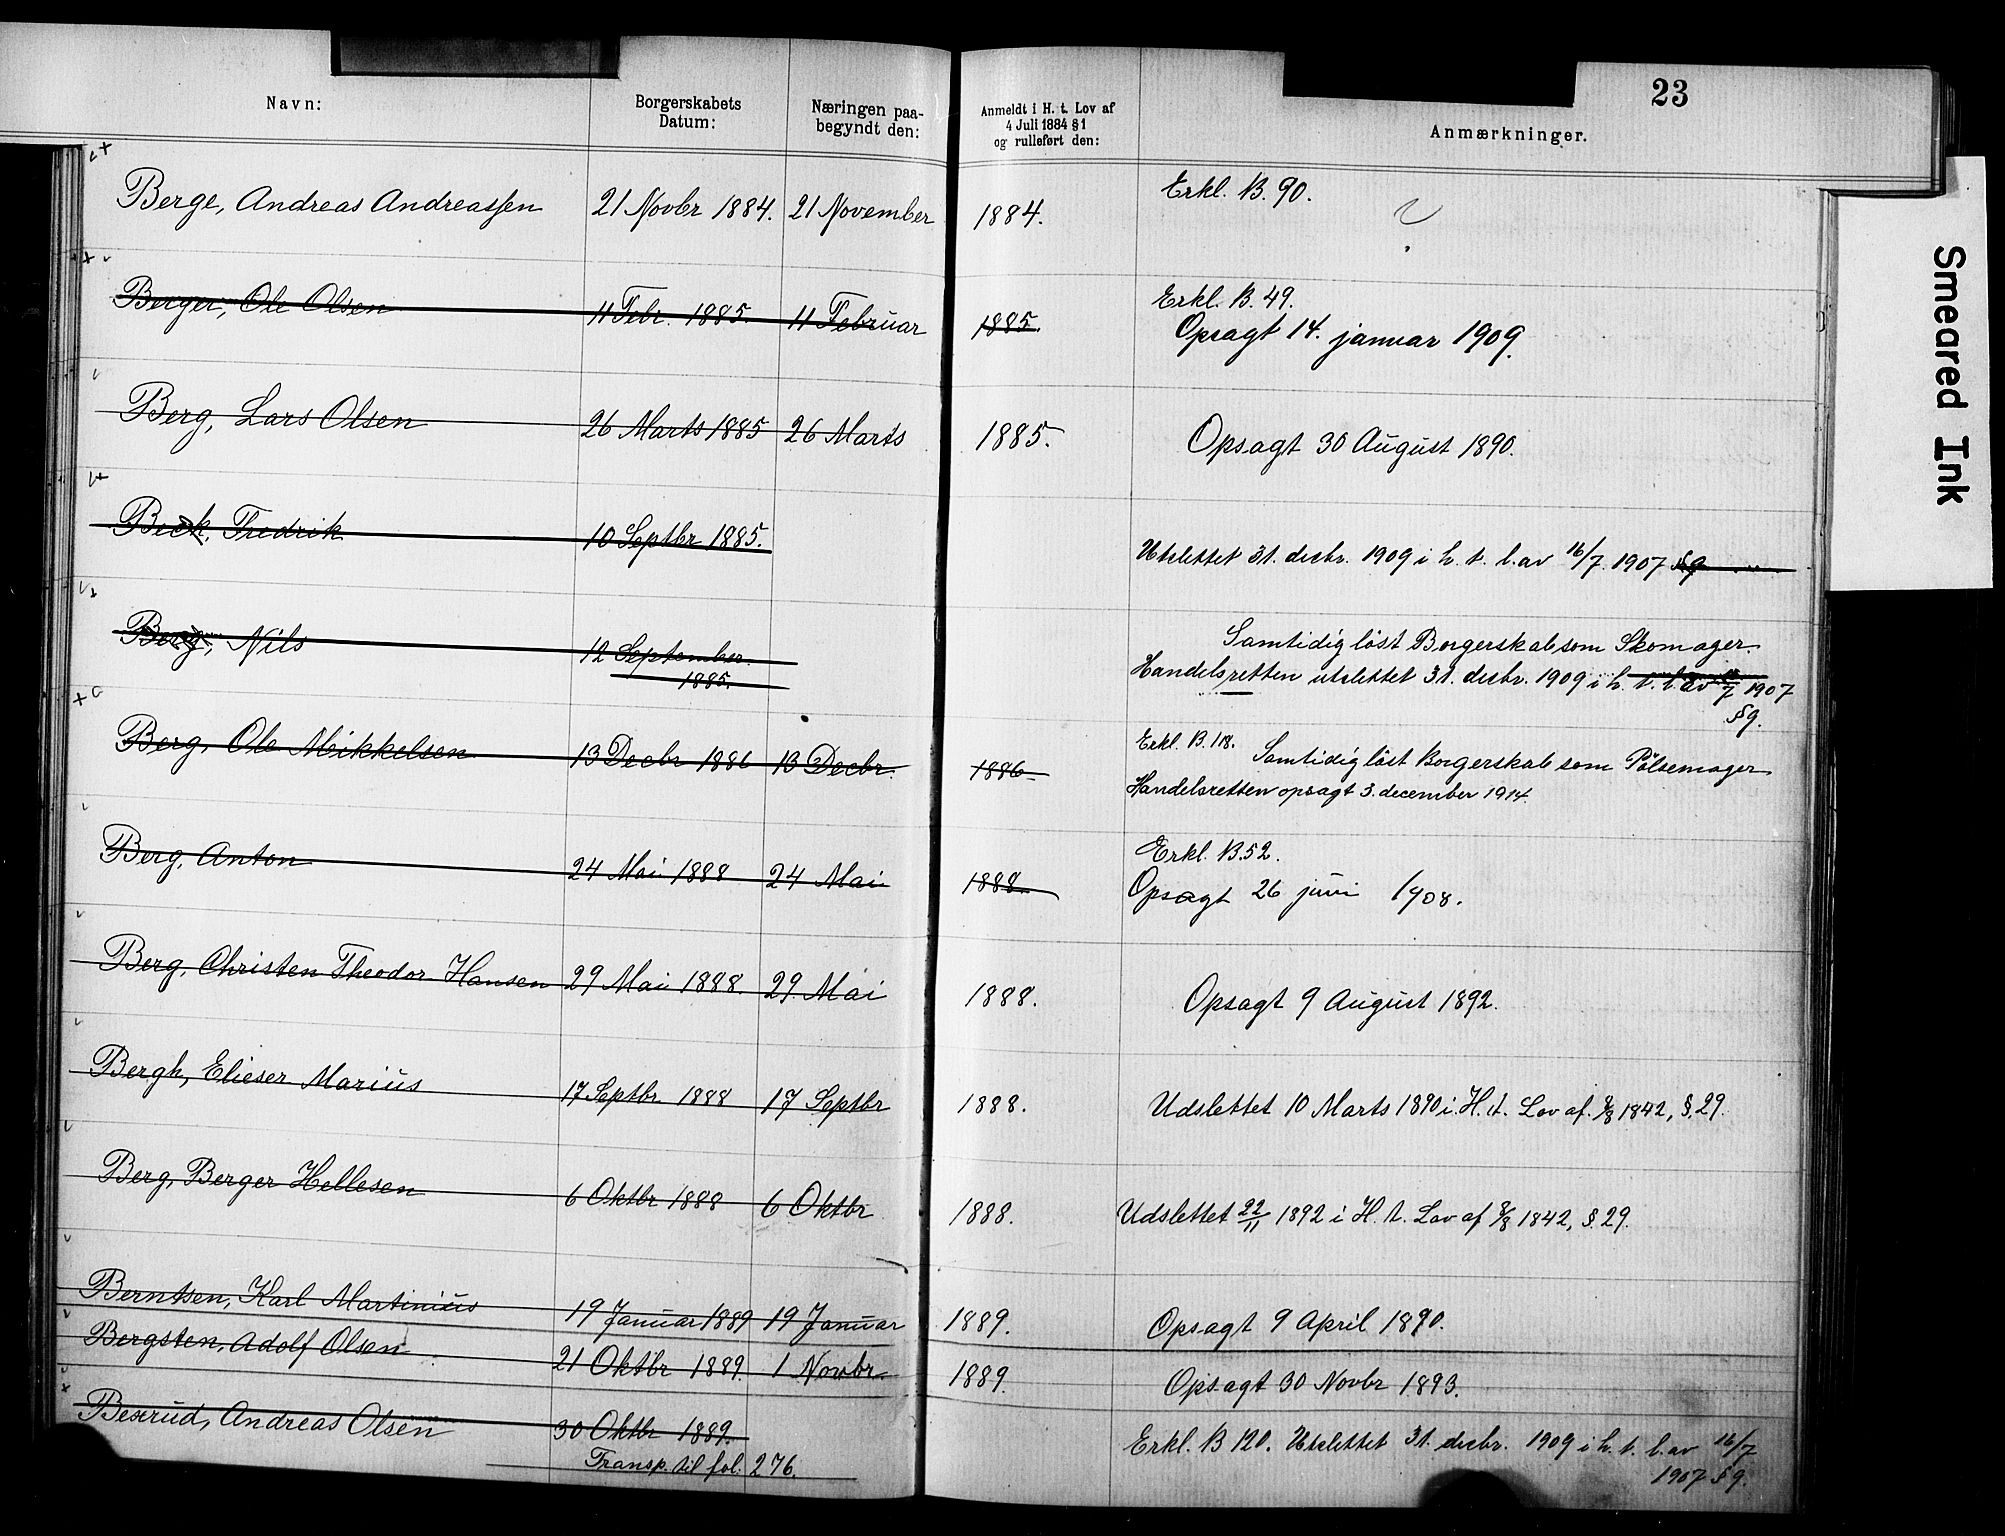 23
Navn: Borgerskabets Datum: Næringen paa-begyndt den: Anmeldt i H. t. Lov af 4 Juli 1884 § 1 og rulleført den: Anmærkninger.
Berge, Andreas Andreassen 21 Novbr 1884. 21 November 1884. Erkl. B. 90.
Berger, Ole Olsen 11 Febr. 1885. 11 Februar 1885. Erkl. B. 49.
Opsagt 14. januar 1909.
Berg, Lars Olsen 26 Marts 1885 26 Marts 1885. Opsagt 30 August 1890.
Beck, Fredrik 10 Septbr 1885. Utslettet 31. desbr. 1909 i h. t. l. av 16/7 1907 § 9
Berg, Nils 12 September 1885. Samtidig löst Borgerskab som Skomager.
Handelsretten utslettet 31. desbr. 1909 i h. t. l. av 16/7 1907
§ 9.
Berg, Ole Mikkelsen 13 Decbr 1886 13 Decbr. 1886 Erkl. B. 118. Samtidig löst Borgerskab som Pölsemager
Handelsretten opsagt 3. december 1914.
Berg, Anton 24 Mai 1888 24 Mai 1888 Erkl. B. 52.
Opsagt 26 juni 1908.
Berg, Christen Theodor Hansen 29 Mai 1888. 29 Mai 1888. Opsagt 9 August 1892.
Bergh, Elieser Marius 17 Septbr 1888 17 Septbr 1888. Udslettet 10 Marts 1890 i H. t. Lov af 8/8 1842, § 29.
Berg, Berger Hellesen 6 Oktbr 1888 6 Oktbr 1888. Udslettet 22/11 1892 i H. t. Lov af 8/8 1842, § 29.
Berntsen, Karl Martinius 19 Januar 1889 19 Januar 1889. Opsagt 9 April 1890.
Bergsten, Adolf Olsen 21 Oktbr 1889. 1 Novbr. 1889. Opsagt 30 Novbr 1893.
Bexrud, Andreas Olsen 30 Oktbr 1889. Erkl. B 120. Utslettet 31. desbr. 1909 i h. t. l. av 16/7
1907 § 9.
Transp. til fol. 276.
Smeared Ink